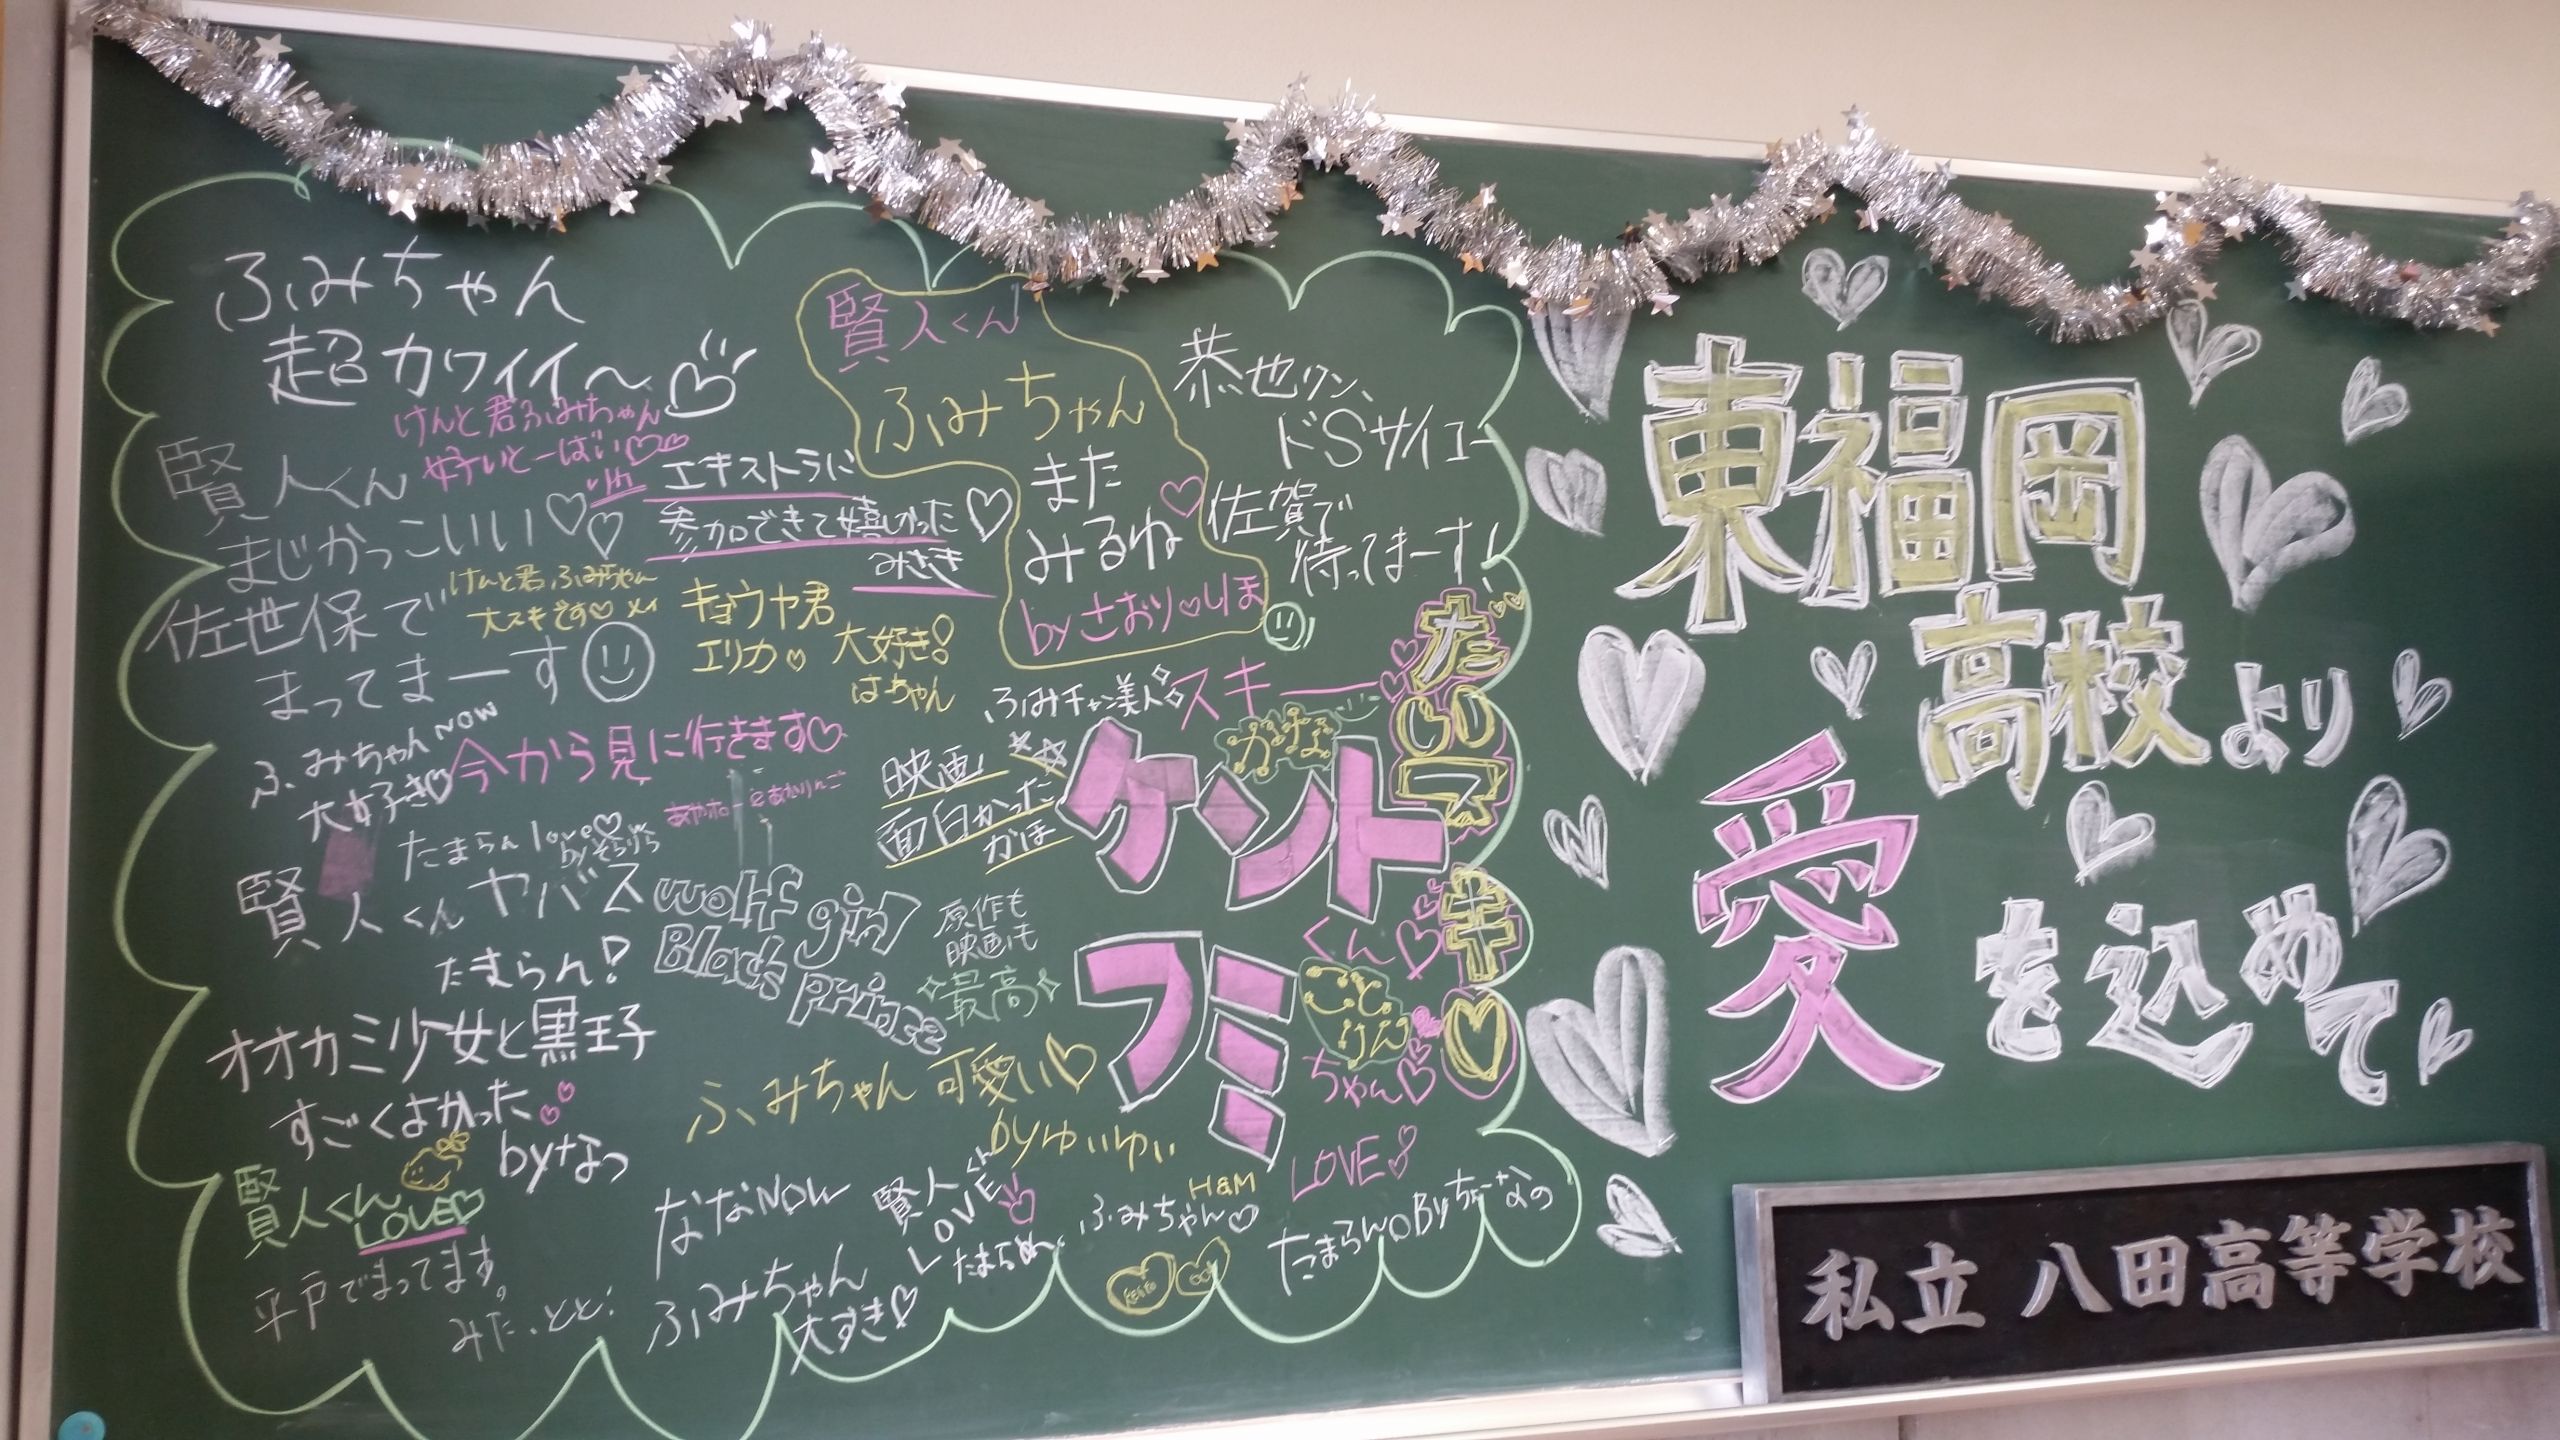 ふみちゃん
超カワイイ〜
けんと君ふみちゃん
賢人くん
まじかっこいい
佐世保で
まってまーす
けんと君、ふみちゃん
大スキです メイ
エキストラに
参加できて嬉しかった
みさき
キョウヤ君
エリカ 大好き!
はーちゃん
賢人くん
ふみちゃん
また
みるね
byさおり しほ
恭也クン、
ドSサイコー
佐賀で
待ってまーす!
ふみちゃんNOW
大好き
今から見に行きます
たまらんlove
byそらりら
賢人くんヤバス
たまらん!
オオカミ少女と黒王子
すごくよかった
byなつ
賢人くん
LOVE
平戸でまってます。
wolf girl
Black prince
原作も
映画も
最高
映画
面白かった
かほ
ふみチャン美人
スキー
かな
ケント
くん
フミ
ちゃん
ことけん
だいスキ
LOVE
ふみちゃん可愛い
byゆいゆい
ななNOW
ふみちゃん
大すき
賢人くん
LOVE
H&M
ふみちゃん
たまらんByちーなの
東福岡
高校より
愛を込めて
私立 八田高等学校